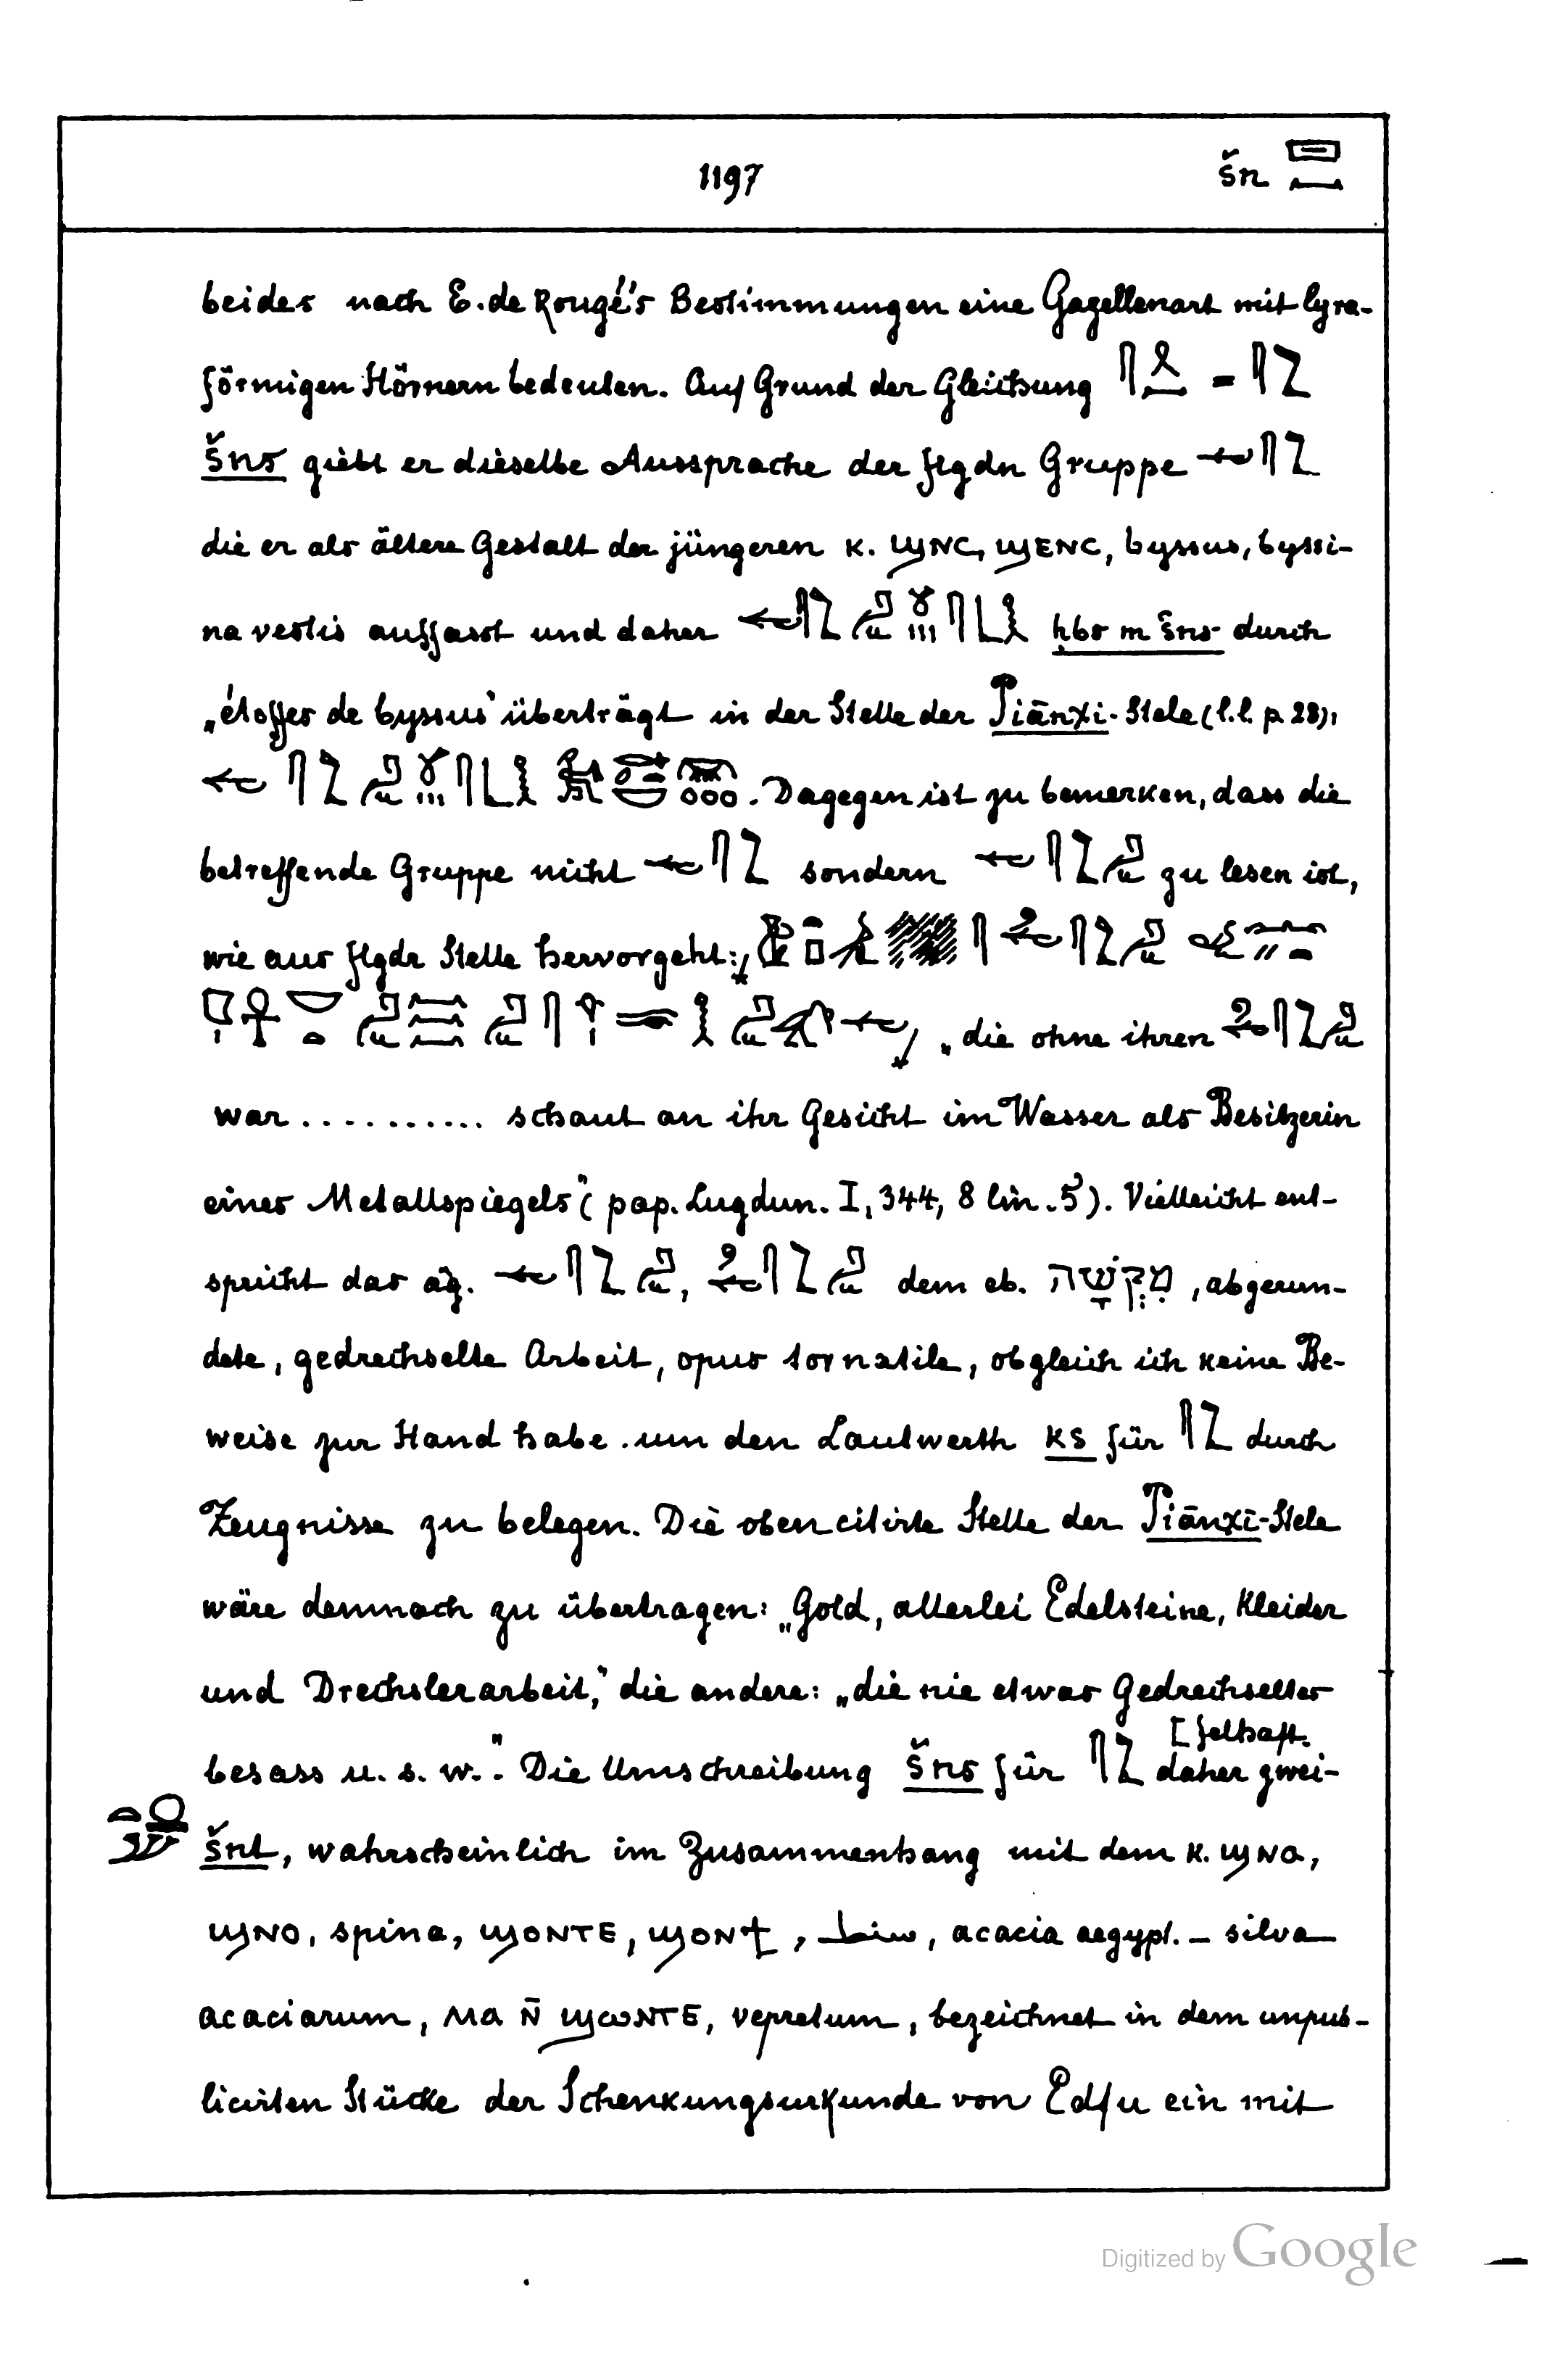 1197 šn
beides nach E. de Rougé's Bestimmungen eine Gazellenart mit lyra-
förmigen Hörnern bedeuten. Auf Grund der Gleichung =
šns giebt er dieselbe Aussprache der flgdn Gruppe
die er als ältere Gestalt der jüngeren K. ϣⲛⲥ, ϣⲉⲛⲥ, byssus, byssi-
na vestis auffasst und daher ḥbs m šns durch
„étoffes de byssus" überträgt in der Stelle der Piānχi-Stele (l.l. p. 28),
. Dagegen ist zu bemerken, dass die
betreffende Gruppe nicht sondern zu lesen ist,
wie aus flgdr Stelle hervorgeht:
„die ohne ihren
war .......... schaut an ihr Gesicht im Wasser als Besitzerin
eines Metallspiegels" (pap. Lugdun. I, 344, 8 lin. 5). Vielleicht ent-
spricht das äg. , dem eb. מִקְשָׁה, abgerun-
dete, gedrechselte Arbeit, opus tornatile, obgleich ich keine Be-
weise zur Hand habe um den Lautwerth ks für durch
Zeugnisse zu belegen. Die oben citirte Stelle der Piānχi-Stele
wäre demnach zu übertragen: „Gold, allerlei Edelsteine, Kleider
und Drechslerarbeit," die andere: „die nie etwas Gedrechseltes
besass u. s. w.". Die Umschreibung šns für daher zwei-
[felhaft.
šnt, wahrscheinlich im Zusammenhang mit dem K. ϣⲛⲁ,
ϣⲛⲟ, spina, ϣⲟⲛⲧⲉ, ϣⲟⲛϯ, سنط, acacia aegypt. – silva
acaciarum, ⲙⲁ ⲛ̄ ϣⲱⲛⲧⲉ, vepretum, bezeichnet in dem unpub-
licirten Stücke der Schenkungsurkunde von Edfu ein mit
Digitized by Google